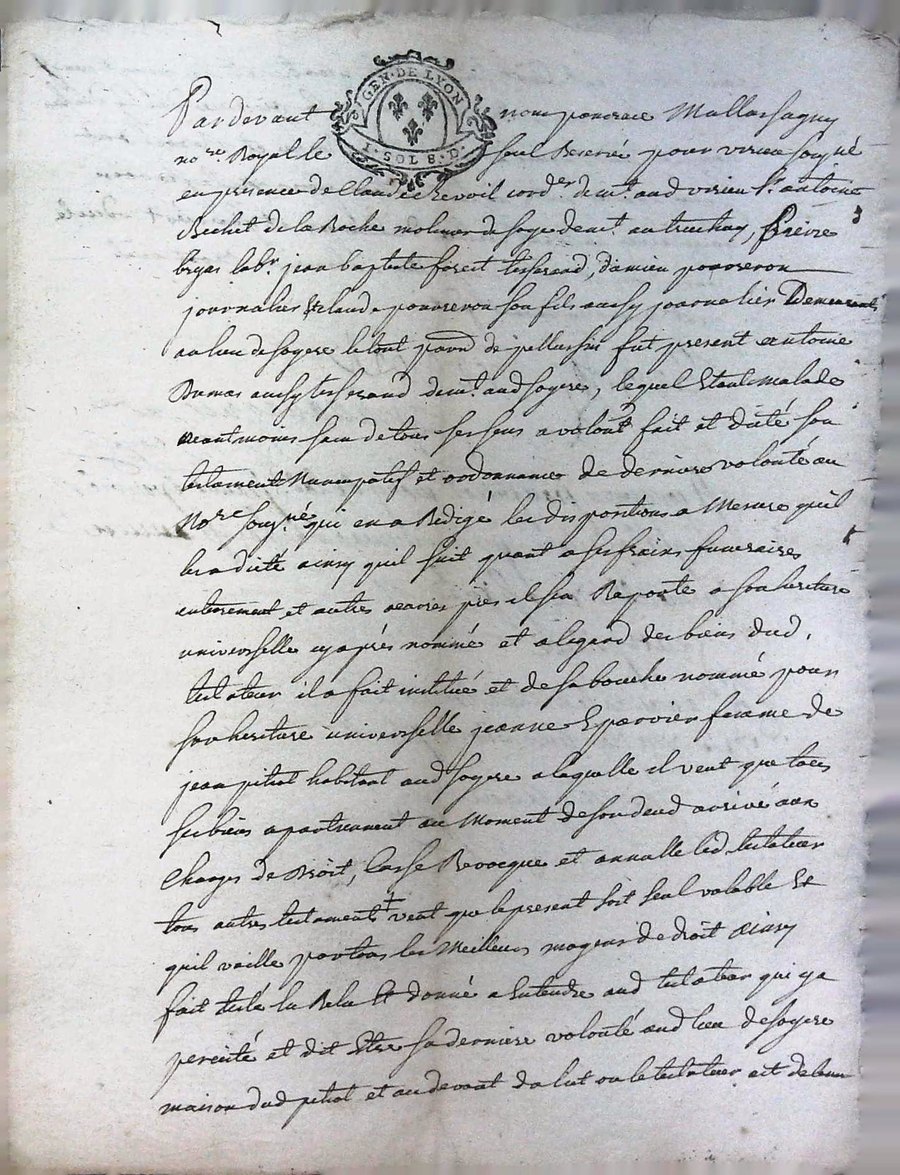 GEN · DE LYON
I · SOL 8 · D ·
Pardevant nous
no.re Royal le pour virieu sousigné
en presence de Claude cord.er dem.t aud virieu s.r antoine
Bechet de la Roche de soye dem.t au
lab.r jean baptiste forest tisserand, damien ponseron
journalier Et claude ponseron son fils aussy journalier Demeurant
au lieu de soyere le tout par.se de pellussin fut present antoine
Dumas aussy tisserand dem.t aud soyere, lequel Etant Malade
neantmoins sain de tous ses sens a volont. fait et dicté son
testament Nuncupatif et ordonnance de derniere volonté au
No.re sous.né qui en a Redigé les dispositions a Mesure quil
les a dicté ainsy quil suit quant a ses frairs funeraires
enterrement et autres œuvres pies il sen Raporte a son heritiere
universelle cy après nommée et a legard des biens dud.
testateur il a fait institué et de sa bouche nommé pour
son heritiere universelle jeanne Eparvier femme de
jean pitiot habitant aud soyere a laquelle il veut que tous
ses biens apartiennent au Moment de son deced arrivé aux
charges de Droit, Casse Revocque et annulle led. testateur
tous autres testaments + veut que le present soit seul valable Et
quil vaille par tous les Meilleurs moyens de droit ainsy
fait dicté lu Relu Et donné a Entendre aud testateur qui y a
percisté et dit Etre sa derniere volonté aud lieu de soyere
maison dud pitiot et au devant du lict ou le testateur est